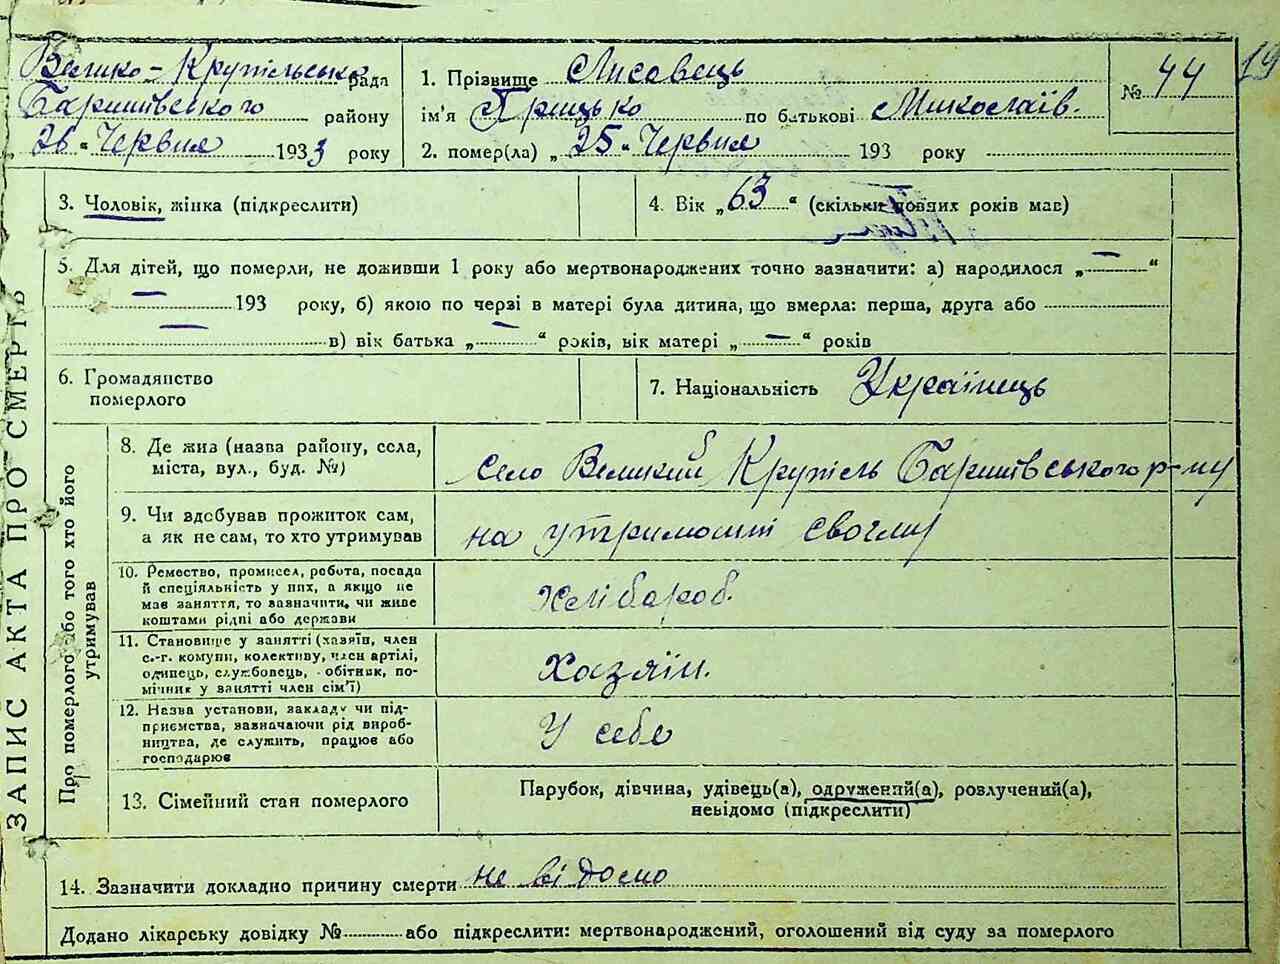 Велико-Крупільська рада
Баришівського району
„26“ Червня 1933 року
1. Прізвище Лисовець
ім'я Грицько по батькові Миколаїв.
2. помер(ла) „25“ Червня 193 року
№ 44
19
ЗАПИС АКТА ПРО СМЕРТЬ
3. Чоловік, жінка (підкреслити)
4. Вік „63“ (скільки повних років мав)
5. Для дітей, що померли, не доживши 1 року або мертвонароджених точно зазначити: а) народилося „—“
— 193 року, б) якою по черзі в матері була дитина, що вмерла: перша, друга або
— в) вік батька „—“ років, вік матері „—“ років
6. Громадянство
померлого
7. Національність Українець
Про померлого або того хто його
утримував
8. Де жив (назва району, села,
міста, вул., буд. №)
село Великий Крупіль Баришівського р-ну
9. Чи вдобував прожиток сам,
а як не сам, то хто утримував
на утриманні
10. Ремество, промисел, робота, посада
й спеціяльність у них, а якщо не
мав заняття, то зазначити, чи живе
коштами рідні або держави
Хлібороб.
11. Становище у занятті (хазяїн, член
с.-г. комуни, колективу, член артілі,
одинець, службовець, обітник, по-
мічник у занятті член сім'ї)
Хазяїн.
12. Назва установи, закладу чи під-
приємства, зазначаючи рід вироб-
ництва, де служить, працює або
господарює
У себе
13. Сімейний стан померлого
Парубок, дівчина, удівець(а), одружений(а), розлучений(а),
невідомо (підкреслити)
14. Зазначити докладно причину смерти не відомо
Додано лікарську довідку № або підкреслити: мертвонароджений, оголошений від суду за померлого